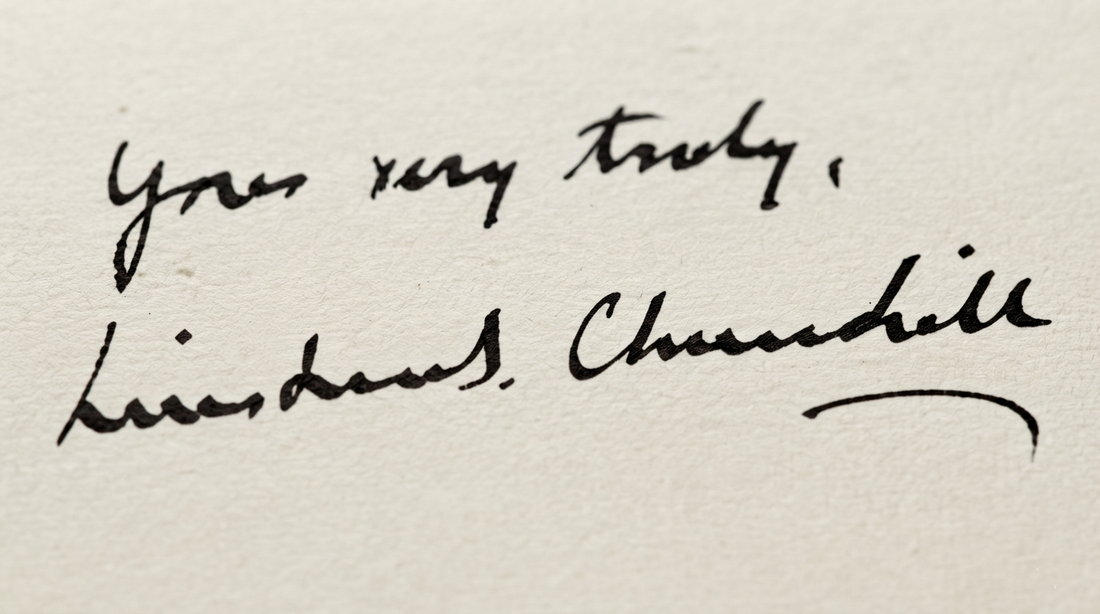 Yours very truly,
Winston S. Churchill